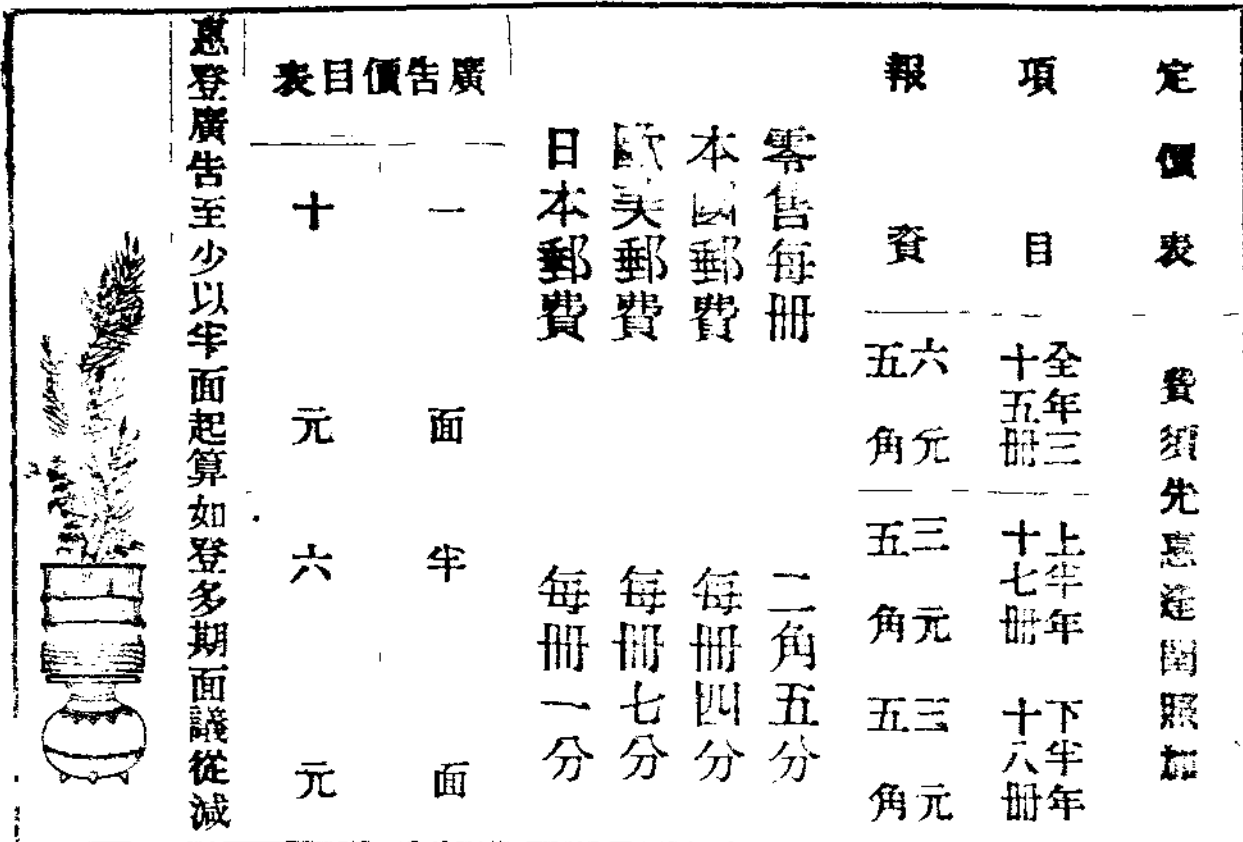 定價表 費須先惠逢閏照加
項目
全年三十五冊
上半年十七冊
下半年十八冊
報資
六元五角
三元五角
三元五角
零售每冊 二角五分
本國郵費 每冊四分
歐美郵費 每冊七分
日本郵費 每冊一分
廣告價目表
一面 半面
十元 六元
惠登廣告至少以半面起算如登多期面議從減